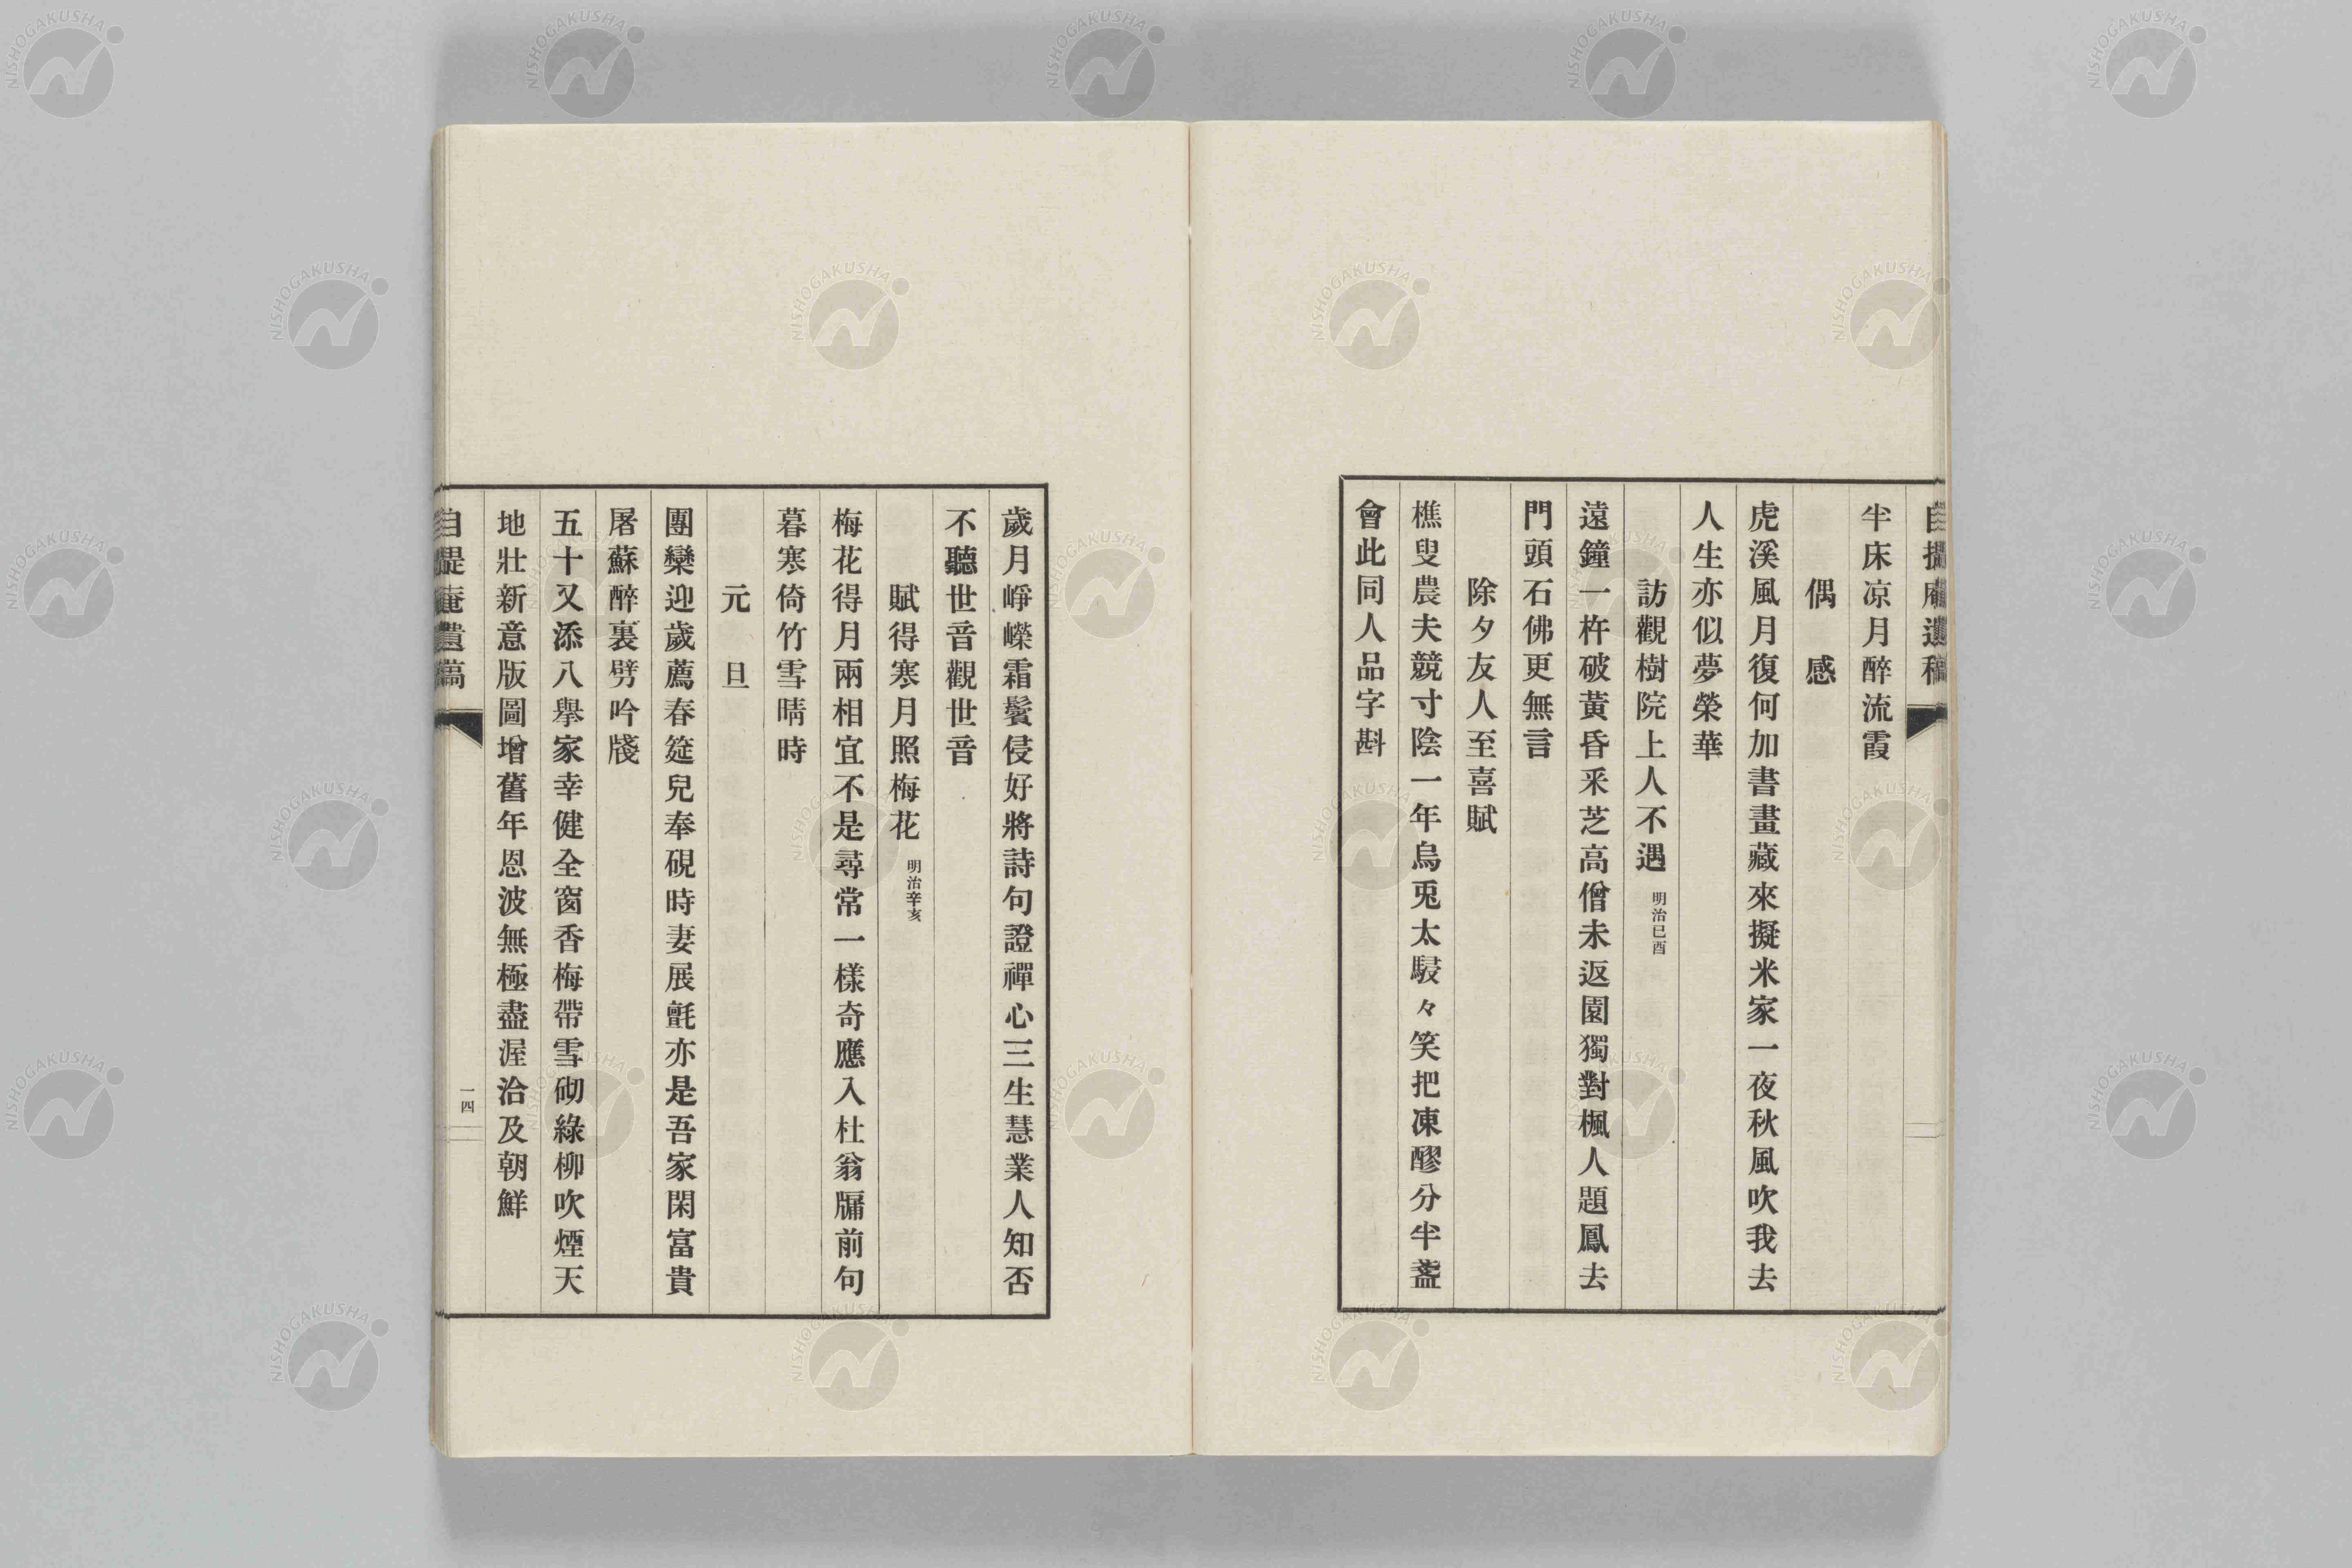 半床凉月醉流霞
偶感
虎溪風月復何加書畫藏來擬米家一夜秋風吹我去
人生亦似夢榮華
訪觀樹院上人不遇 明治己酉
遠鐘一杵破黃昏釆芝高僧未返園獨對楓人題鳳去
門頭石佛更無言
除夕友人至喜賦
樵叟農夫競寸陰一年烏兎太駸々笑把凍醪分半盞
會此同人品字斟
歲月崢嶸霜鬢侵好將詩句證禪心三生慧業人知否
不聽世音觀世音
賦得寒月照梅花 明治辛亥
梅花得月兩相宜不是尋常一樣奇應入杜翁牖前句
暮寒倚竹雪晴時
元旦
團欒迎歲薦春筵兒奉硯時妻展氈亦是吾家閑富貴
屠蘇醉裏劈吟牋
五十又添八擧家幸健全窗香梅帶雪砌綠柳吹煙天
地壯新意版圖增舊年恩波無極盡渥洽及朝鮮
一四
NISHOGAKUSHA